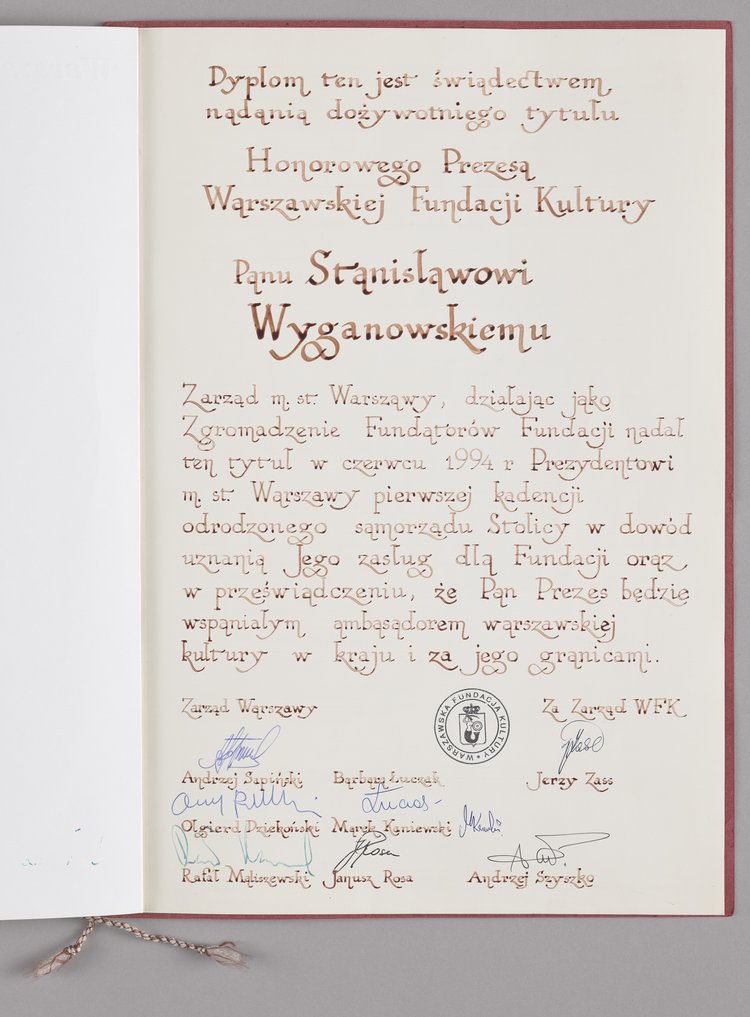 Dyplom ten jest świadectwem
nadania dożywotniego tytułu
Honorowego Prezesa
Warszawskiej Fundacji Kultury
Panu Stanisławowi
Wyganowskiemu
Zarząd m. st. Warszawy, działając jako
Zgromadzenie Fundatorów Fundacji nadał
ten tytuł w czerwcu 1994 r Prezydentowi
m. st. Warszawy pierwszej kadencji
odrodzonego samorządu Stolicy w dowód
uznania Jego zasług dla Fundacji oraz
w przeświadczeniu, że Pan Prezes będzie
wspaniałym ambasadorem warszawskiej
kultury w kraju i za jego granicami.
Zarząd Warszawy
WARSZAWSKA FUNDACJA KULTURY
Za Zarząd WFK
Andrzej Sapiński Barbara Łuczak Jerzy Zass
Olgierd Dziekoński Marek Kaniewski
Rafał Maliszewski Janusz Rosa Andrzej Szyszko